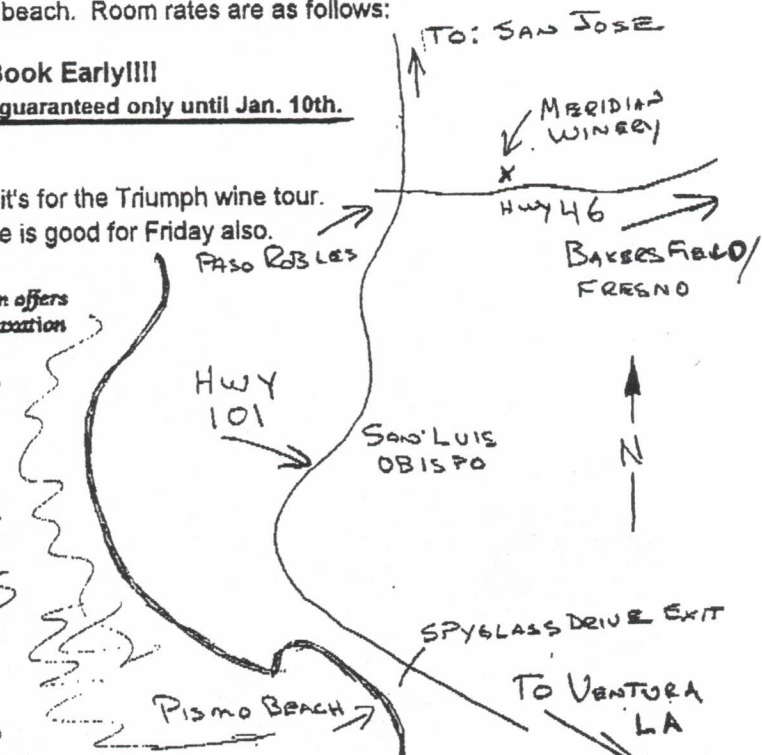 beach. Room rates are as follows:
Book Early!!!!
guaranteed only until Jan. 10th.
it's for the Triumph wine tour.
e is good for Friday also.
n offers
TO: SAN JOSE
MERIDIAN
WINERY
X
HWY 46
PASO ROBLES
BAKERSFIELD/
FRESNO
HWY
101
SAN LUIS
OBISPO
N
SPYGLASS DRIVE EXIT
PISMO BEACH
TO VENTURA
LA